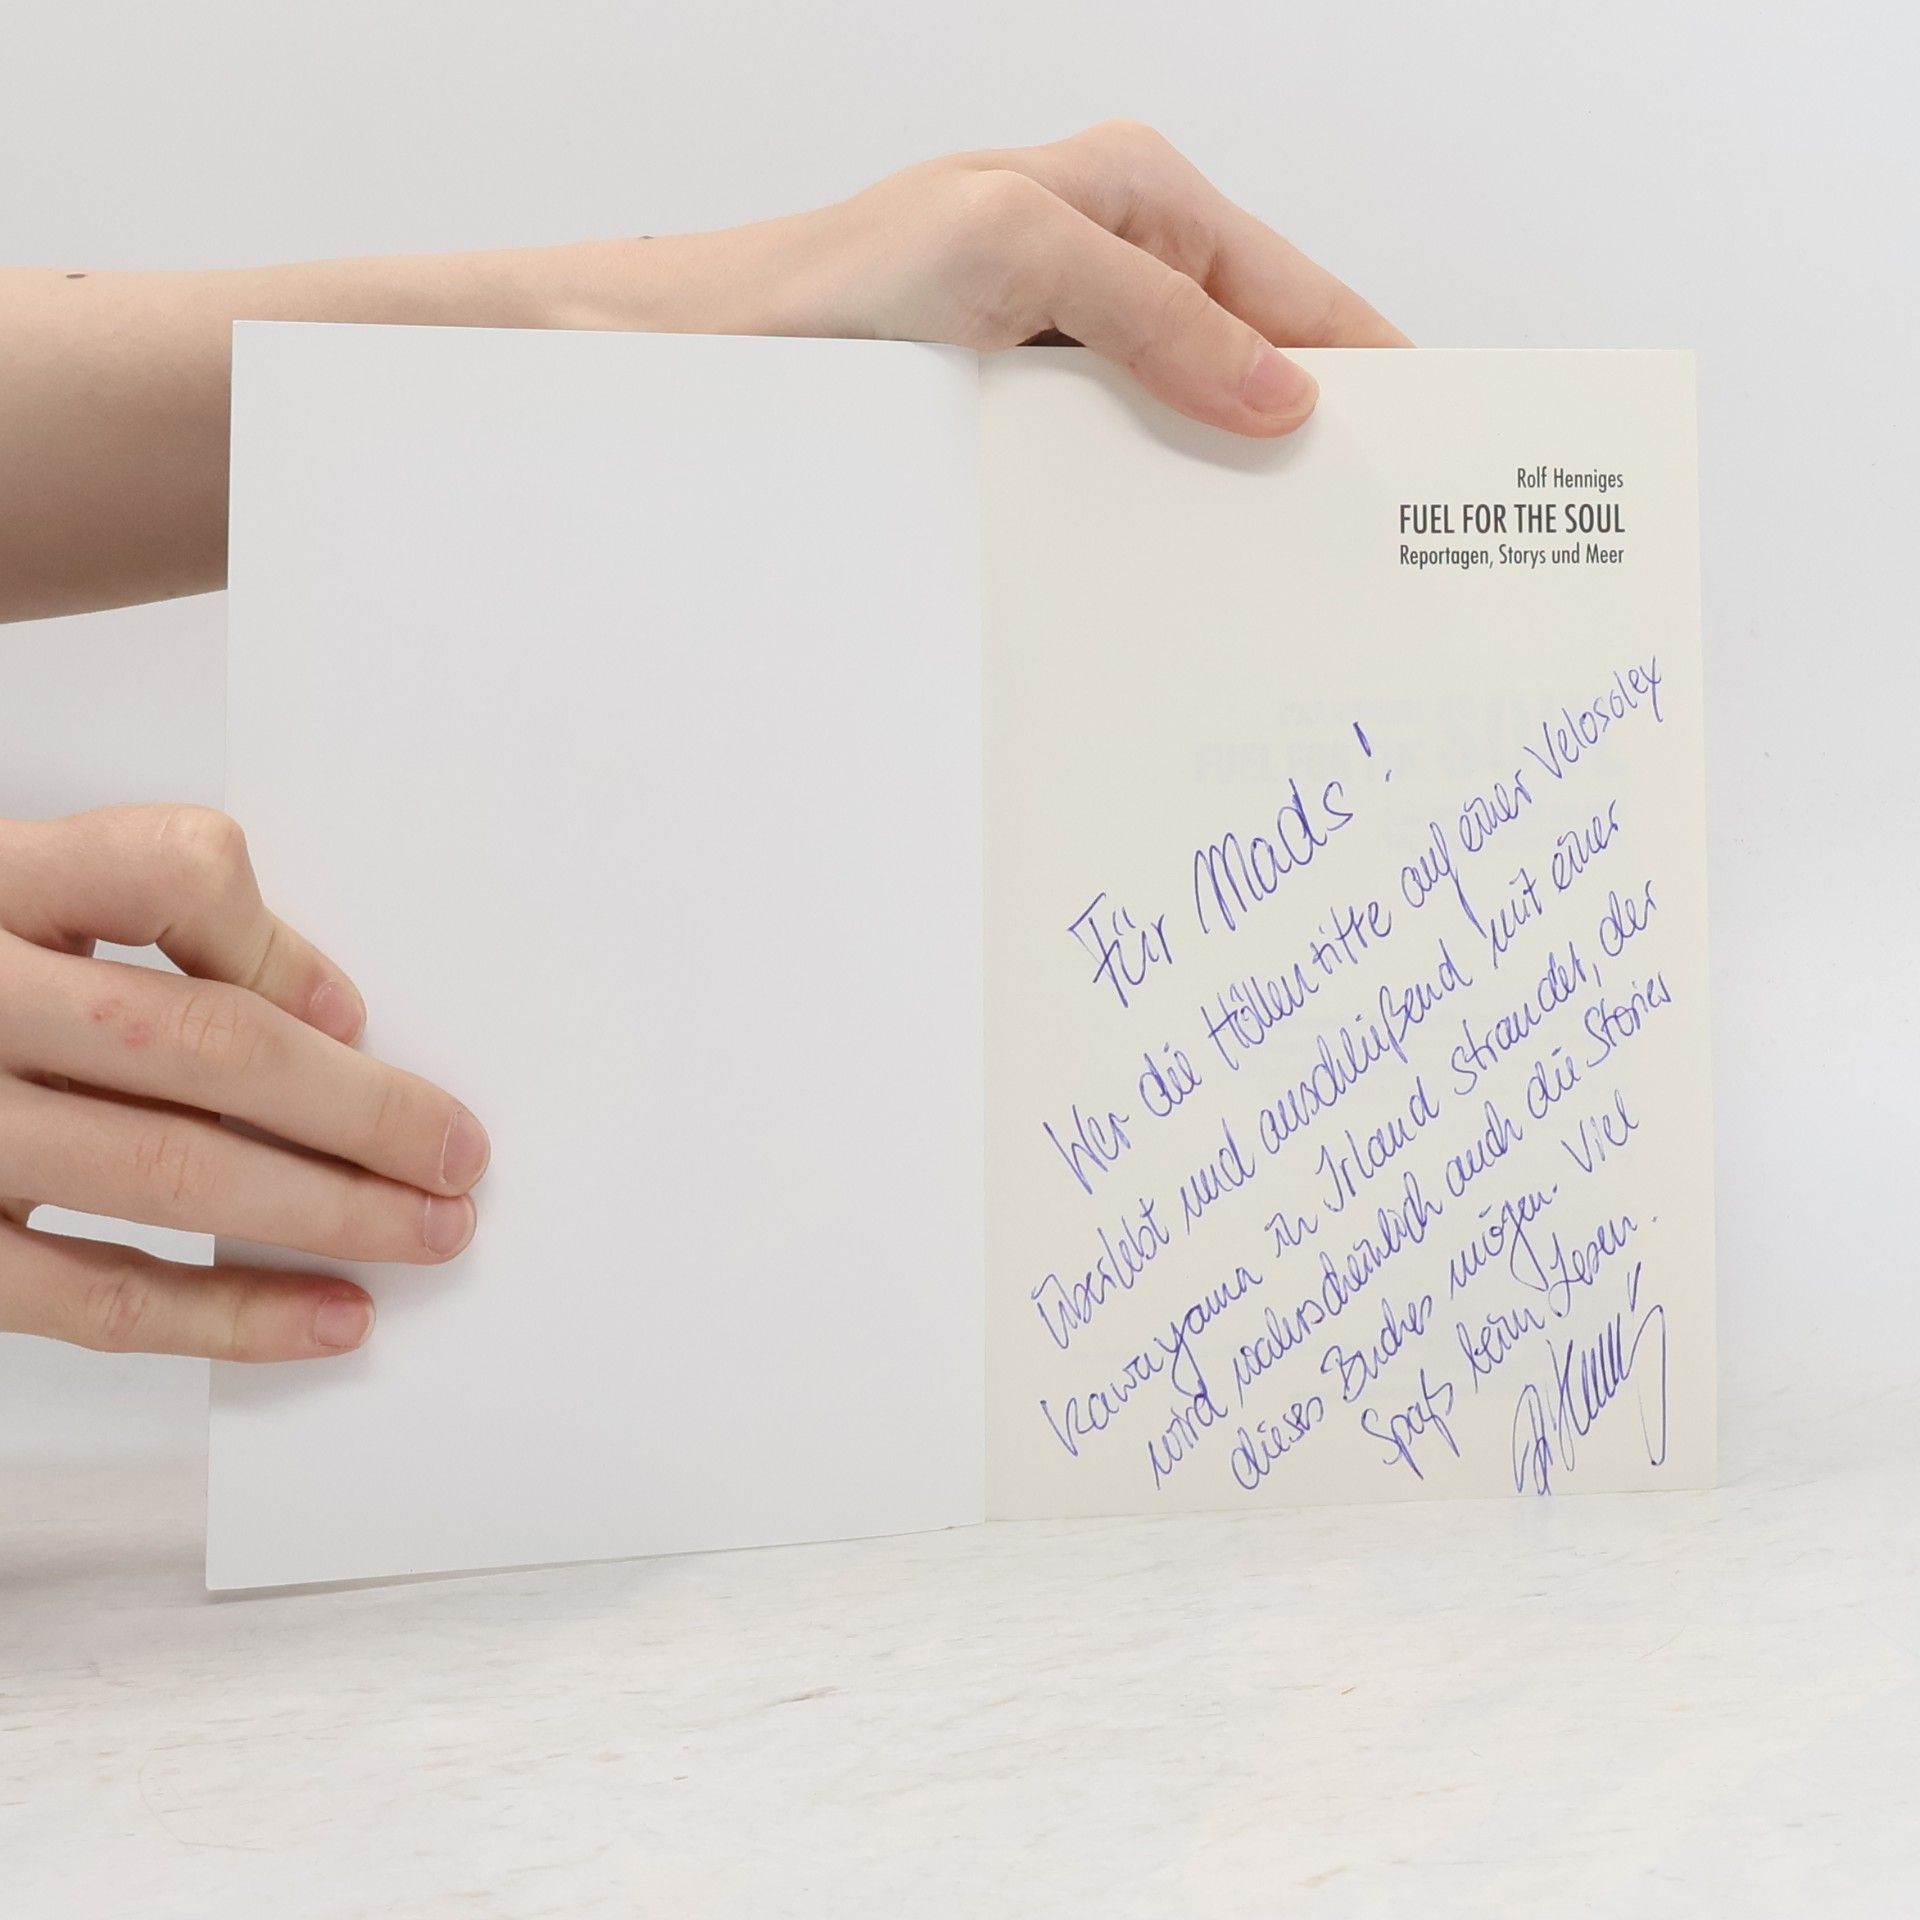 Rolf Henniges
FUEL FOR THE SOUL
Reportagen, Storys und Meer
Für Mads!
Wer die Höllenritte auf einer Velosolex
überlebt und anschließend mit einer
Kawayama in Irland strandet, der
wird wahrscheinlich auch die Stories
dieses Buches mögen. Viel
Spaß beim Lesen.